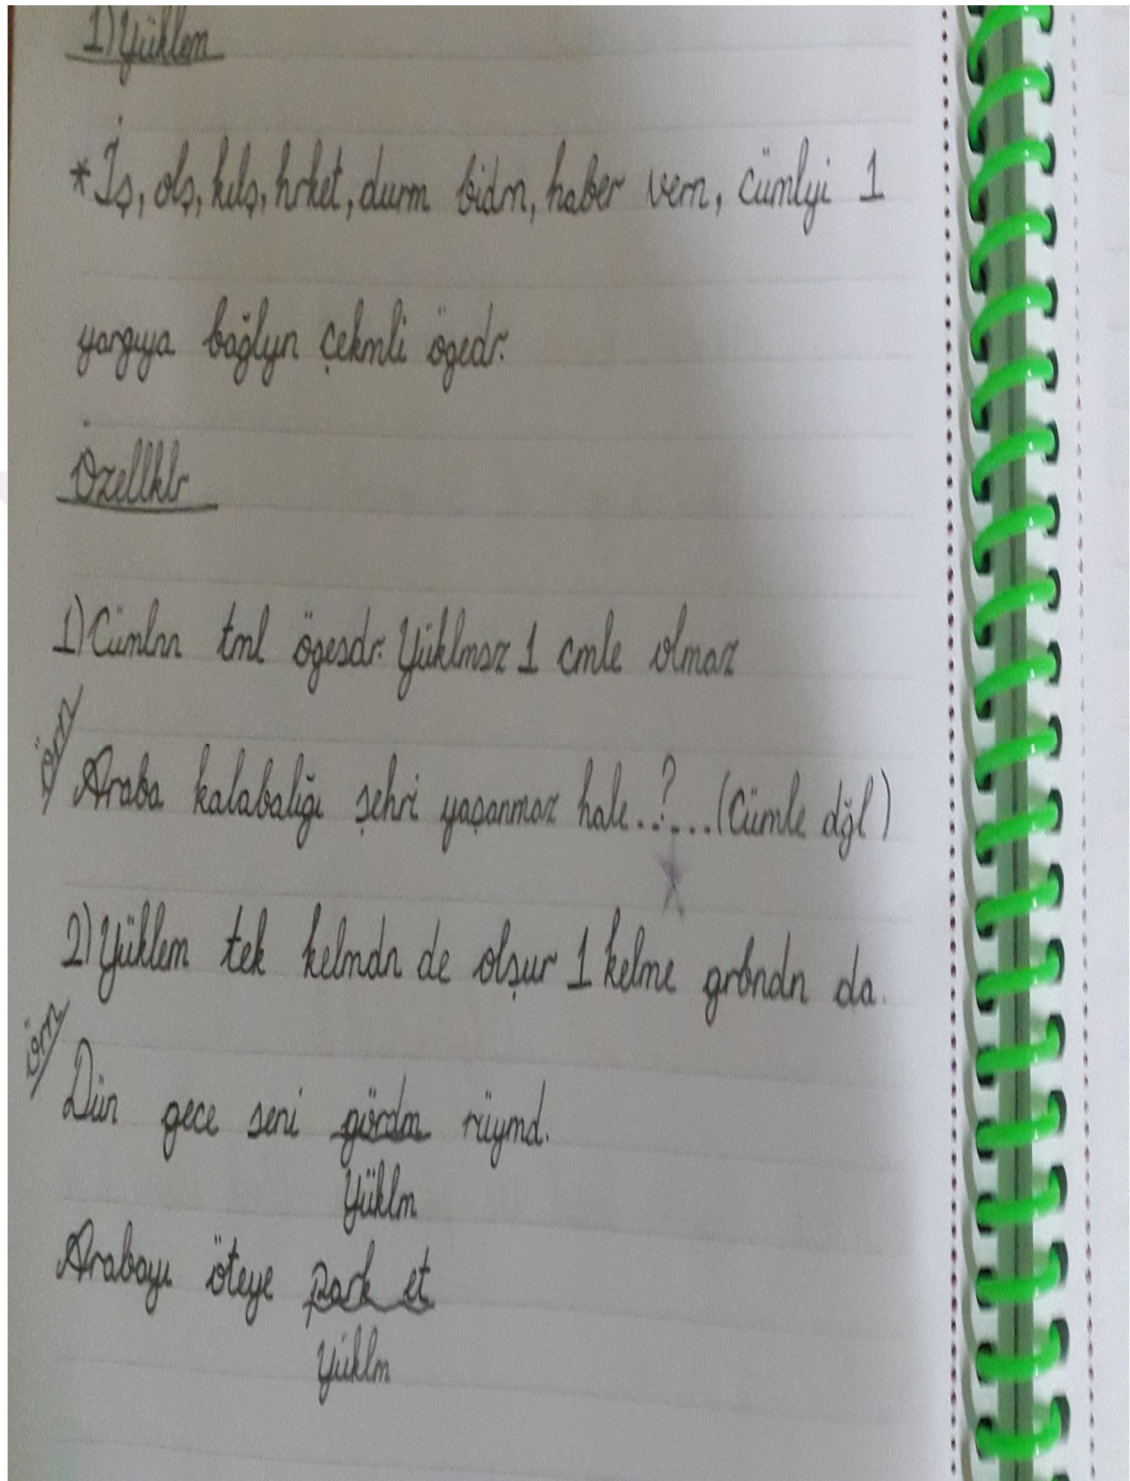 1) Yüklem
* İş, olş, kılş, hrket, durm bidrn, haber vern, cümlyi 1
yargıya bağlyn çekmli ögedr.
Özellklr
1) Cümlnn tml ögesdr. Yüklmsz 1 cmle olmaz
örn/
Araba kalabalığı şehri yaşanmaz hale..?... (Cümle dğl)
2) Yüklem tek kelmdn de olşur 1 kelme grbndn da.
örn/
Dün gece seni gördm rüymd.
Yüklm
Arabayı öteye park et
Yüklm